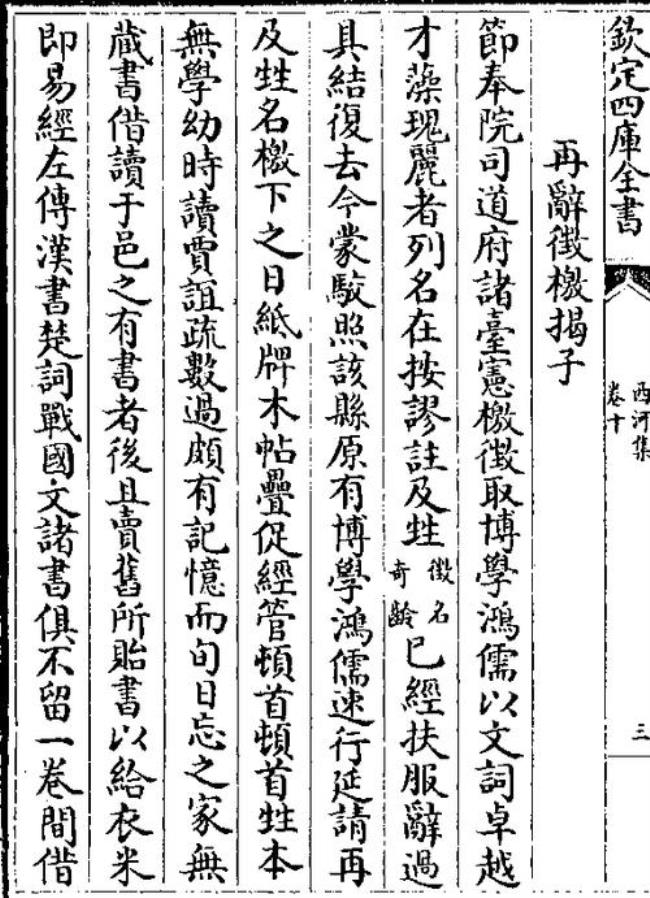 欽定四庫全書
西河集
卷十
三
再辭徴檄揭子
節奉院司道府諸臺憲檄徴取博學鴻儒以文詞卓越
才藻瑰麗者列名在按謬註及甡徴名奇齡已經扶服辭過
具結復去今蒙駁照該縣原有博學鴻儒速行延請再
及甡名檄下之日紙牌木帖疊促經管頓首頓首甡本
無學幼時讀賈誼疏數過頗有記憶而旬日忘之家無
蔵書借讀于邑之有書者後且賣舊所貽書以給衣米
即易經左傳漢書楚詞戰國文諸書俱不留一卷間借